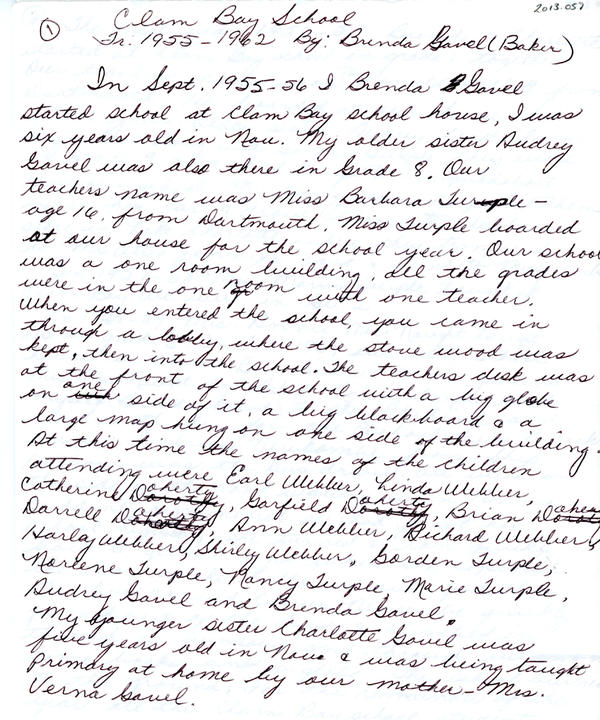 2013.057
① Clam Bay School
Fr. 1955-1962 By: Brenda Gavel (Baker)
In Sept. 1955-56 I Brenda Gavel
started school at Clam Bay school house, I was
six years old in Nov. My older sister Audrey
Gavel was also there in Grade 8. Our
teachers name was Miss Barbara Turple -
age 16, from Dartmouth. Miss Turple boarded
at our house for the school year. Our school
was a one room building, all the grades
were in the one room with one teacher.
When you entered the school, you came in
through a lobby, where the stove wood was
kept, then into the school. The teachers desk was
at the front of the school with a big globe
on one side of it, a big blackboard & a
large map hung on one side of the building.
At this time the names of the children
attending were Earl Webber, Linda Webber,
Catherine Doherty, Garfield Doherty, Brian Doherty
Darrell Doherty, Ann Webber, Richard Webber,
Harley Webber, Shirley Webber, Gorden Turple,
Norlene Turple, Nancy Turple, Marie Turple,
Audrey Gavel and Brenda Gavel.
My younger sister Charlotte Gavel was
five years old in Nov. & was being taught
Primary at home by our mother - Mrs.
Verna Gavel.